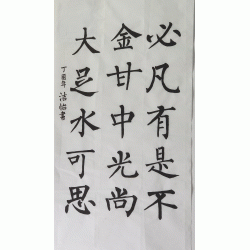 必凡有是不
金甘中光尚
大足水可思
丁酉年 洁怡书